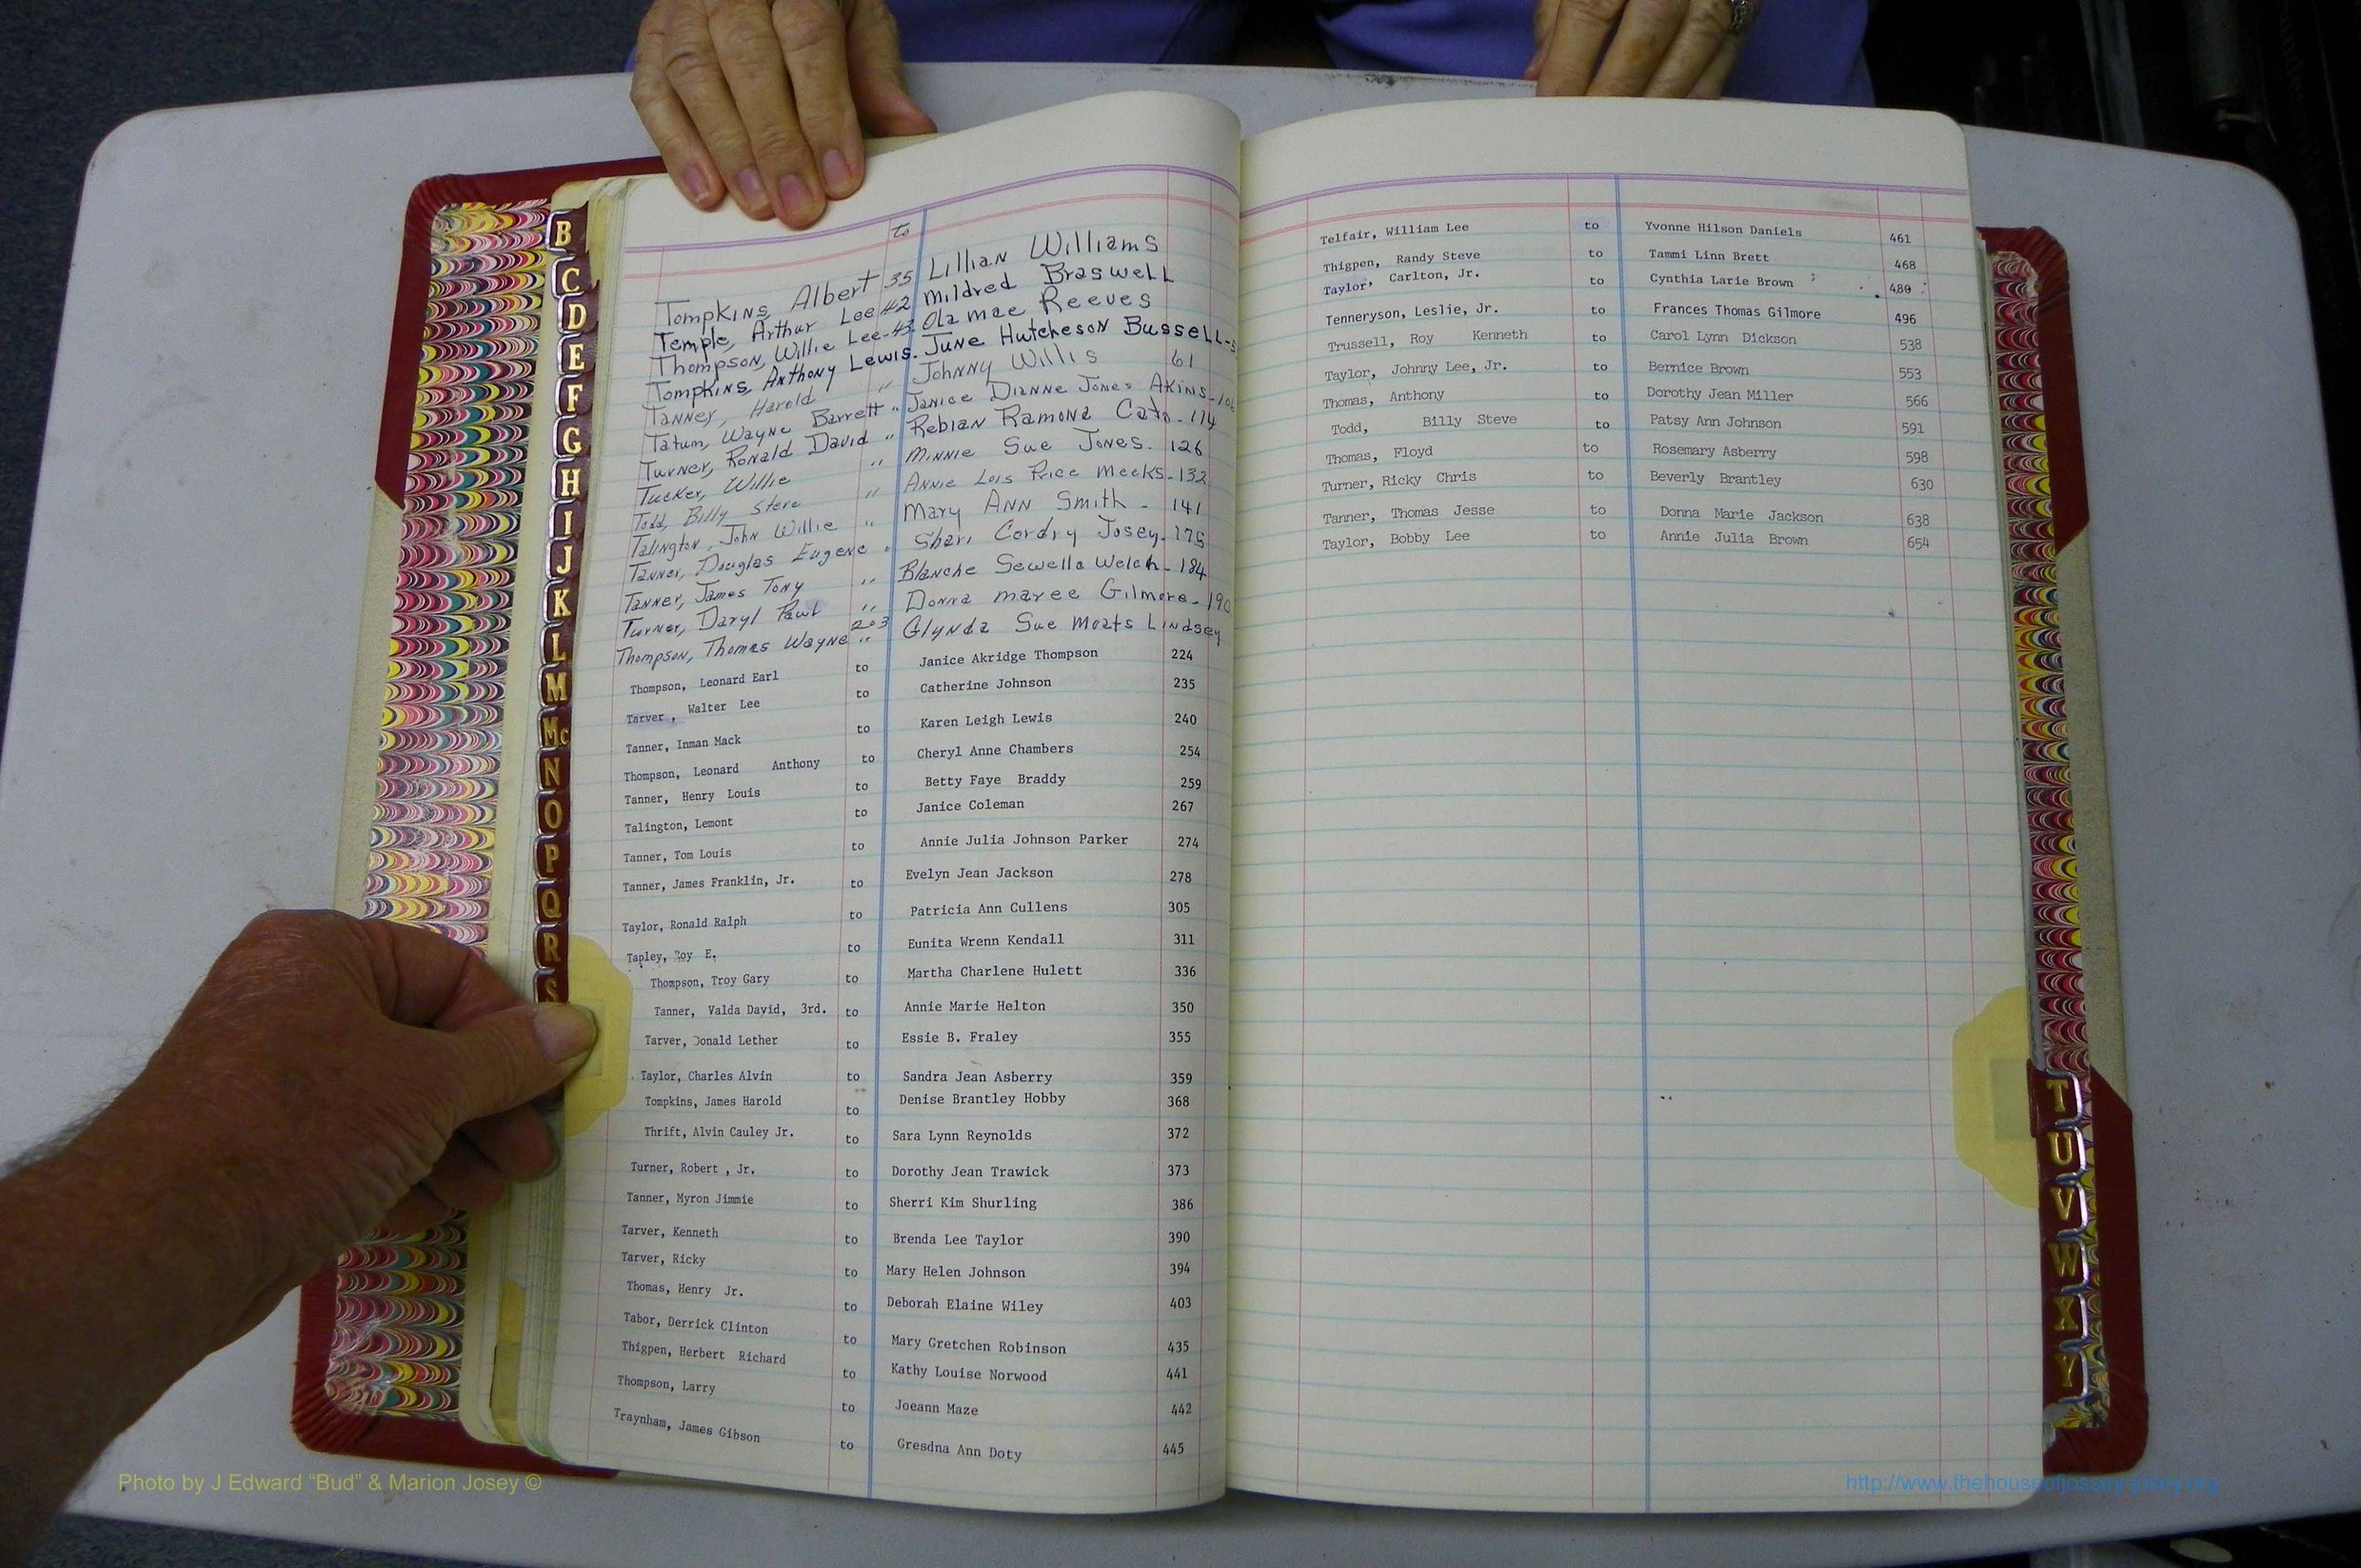 B
C
D
E
F
G
H
I
J
K
L
M
Mc
N
O
P
Q
R
S
to
Tompkins, Albert 35 Lillian Williams
Temple, Arthur Lee #2 Mildred Braswell
Thompson, Willie Lee-43. Ola mae Reeves
Tompkins, Anthony Lewis. June Hutcheson Bussell-5
Tanney, Harold " Johnny Willis 61
Tatum, Wayne Barrett " Janice Dianne Jones Akins-106
Turner, Ronald David " Rebian Ramona Cato-114
Tucker, Willie " Minnie Sue Jones. 126
Todd, Billy Steve " Annie Lois Price Meeks-132
Talington, John Willie " Mary Ann Smith - 141
Tanner, Douglas Eugene " Shari Cordry Josey. 175
Tanner, James Tony " Blanche Sewella Welch-184
Turner, Daryl Paul " Donna maree Gilmore-190
Thompson, Thomas Wayne 203 " Glynda Sue Moats Lindsey
Thompson, Leonard Earl to Janice Akridge Thompson 224
Tarver , Walter Lee to Catherine Johnson 235
Tanner, Inman Mack to Karen Leigh Lewis 240
Thompson, Leonard Anthony to Cheryl Anne Chambers 254
Tanner, Henry Louis to Betty Faye Braddy 259
Talington, Lemont to Janice Coleman 267
Tanner, Tom Louis to Annie Julia Johnson Parker 274
Tanner, James Franklin, Jr. to Evelyn Jean Jackson 278
Taylor, Ronald Ralph to Patricia Ann Cullens 305
Tapley, Roy E. to Eunita Wrenn Kendall 311
Thompson, Troy Gary to Martha Charlene Hulett 336
Tanner, Valda David, 3rd. to Annie Marie Helton 350
Tarver, Donald Lether to Essie B. Fraley 355
Taylor, Charles Alvin to Sandra Jean Asberry 359
Tompkins, James Harold to Denise Brantley Hobby 368
Thrift, Alvin Cauley Jr. to Sara Lynn Reynolds 372
Turner, Robert , Jr. to Dorothy Jean Trawick 373
Tanner, Myron Jimmie to Sherri Kim Shurling 386
Tarver, Kenneth to Brenda Lee Taylor 390
Tarver, Ricky to Mary Helen Johnson 394
Thomas, Henry Jr. to Deborah Elaine Wiley 403
Tabor, Derrick Clinton to Mary Gretchen Robinson 435
Thigpen, Herbert Richard to Kathy Louise Norwood 441
Thompson, Larry to Joeann Maze 442
Traynham, James Gibson to Gresdna Ann Doty 445
Telfair, William Lee to Yvonne Hilson Daniels 461
Thigpen, Randy Steve to Tammi Linn Brett 468
Taylor, Carlton, Jr. to Cynthia Larie Brown 480
Tenneryson, Leslie, Jr. to Frances Thomas Gilmore 496
Trussell, Roy Kenneth to Carol Lynn Dickson 538
Taylor, Johnny Lee, Jr. to Bernice Brown 553
Thomas, Anthony to Dorothy Jean Miller 566
Todd, Billy Steve to Patsy Ann Johnson 591
Thomas, Floyd to Rosemary Asberry 598
Turner, Ricky Chris to Beverly Brantley 630
Tanner, Thomas Jesse to Donna Marie Jackson 638
Taylor, Bobby Lee to Annie Julia Brown 654
T
U
V
W
X
Y
Photo by J Edward “Bud” & Marion Josey ©
http://www.thehouseofjossey-josey.org